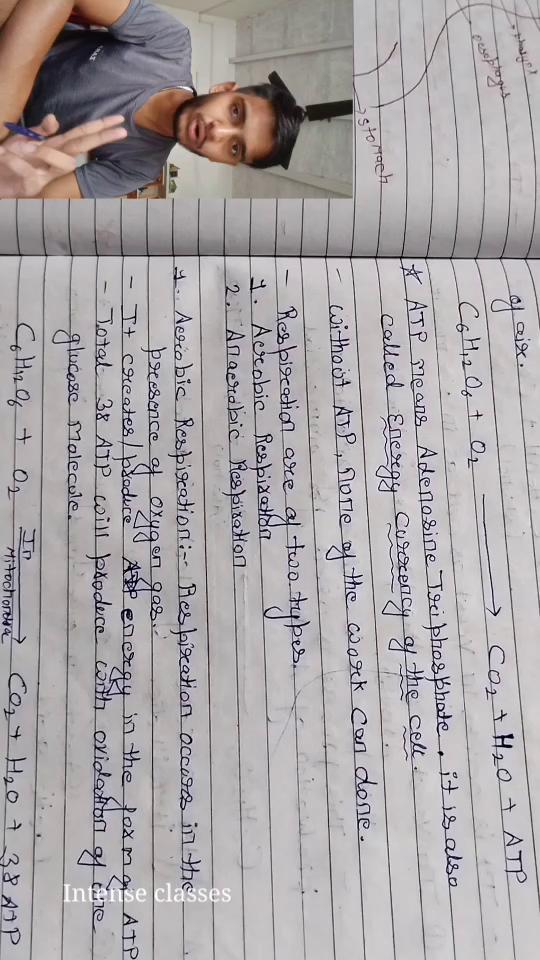 pharynx
oesophagus
stomach
of air.
C6H12O6 + O2 → CO2 + H2O + ATP
* ATP means Adenosine Triphosphate, it is also
called Energy Currency of the cell.
- without ATP, None of the work can done.
- Respiration are of two types.
1. Aerobic Respiration
2. Anaerobic Respiration
1. Aerobic Respiration:- Respiration occurs in the
presence of oxygen gas.
- It creates/produce energy in the form of ATP
- Total 38 ATP will produce with oxidation of one
glucose molecule.
C6H12O6 + O2 In Mitochondria → CO2 + H2O + 38 ATP
Intense classes